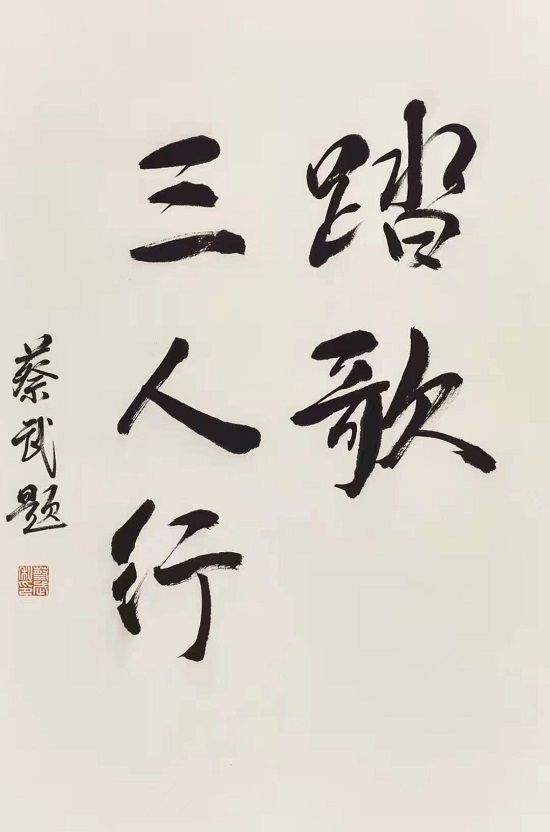 踏歌
三人行
蔡武题